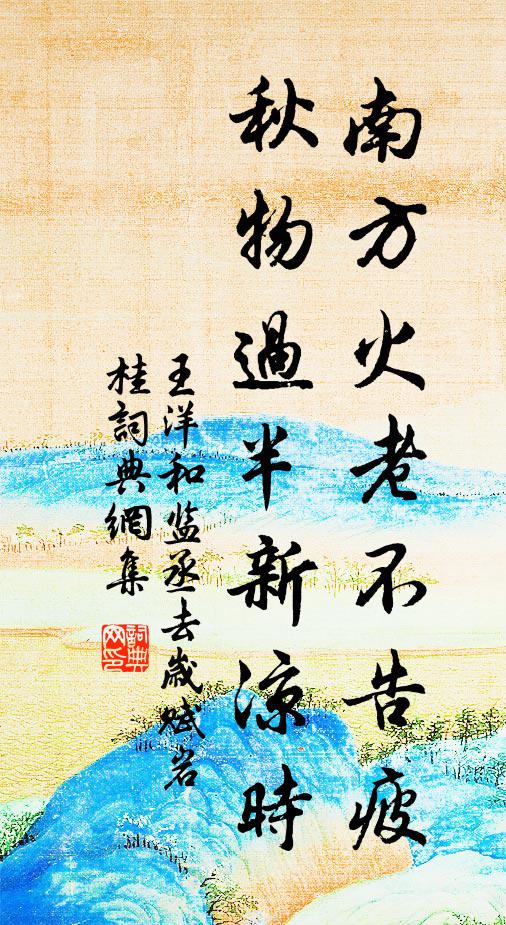 南方火老不告疲
秋物過半新涼時
王洋和监丞去歲賦岩
桂詞典網集
詞典网印